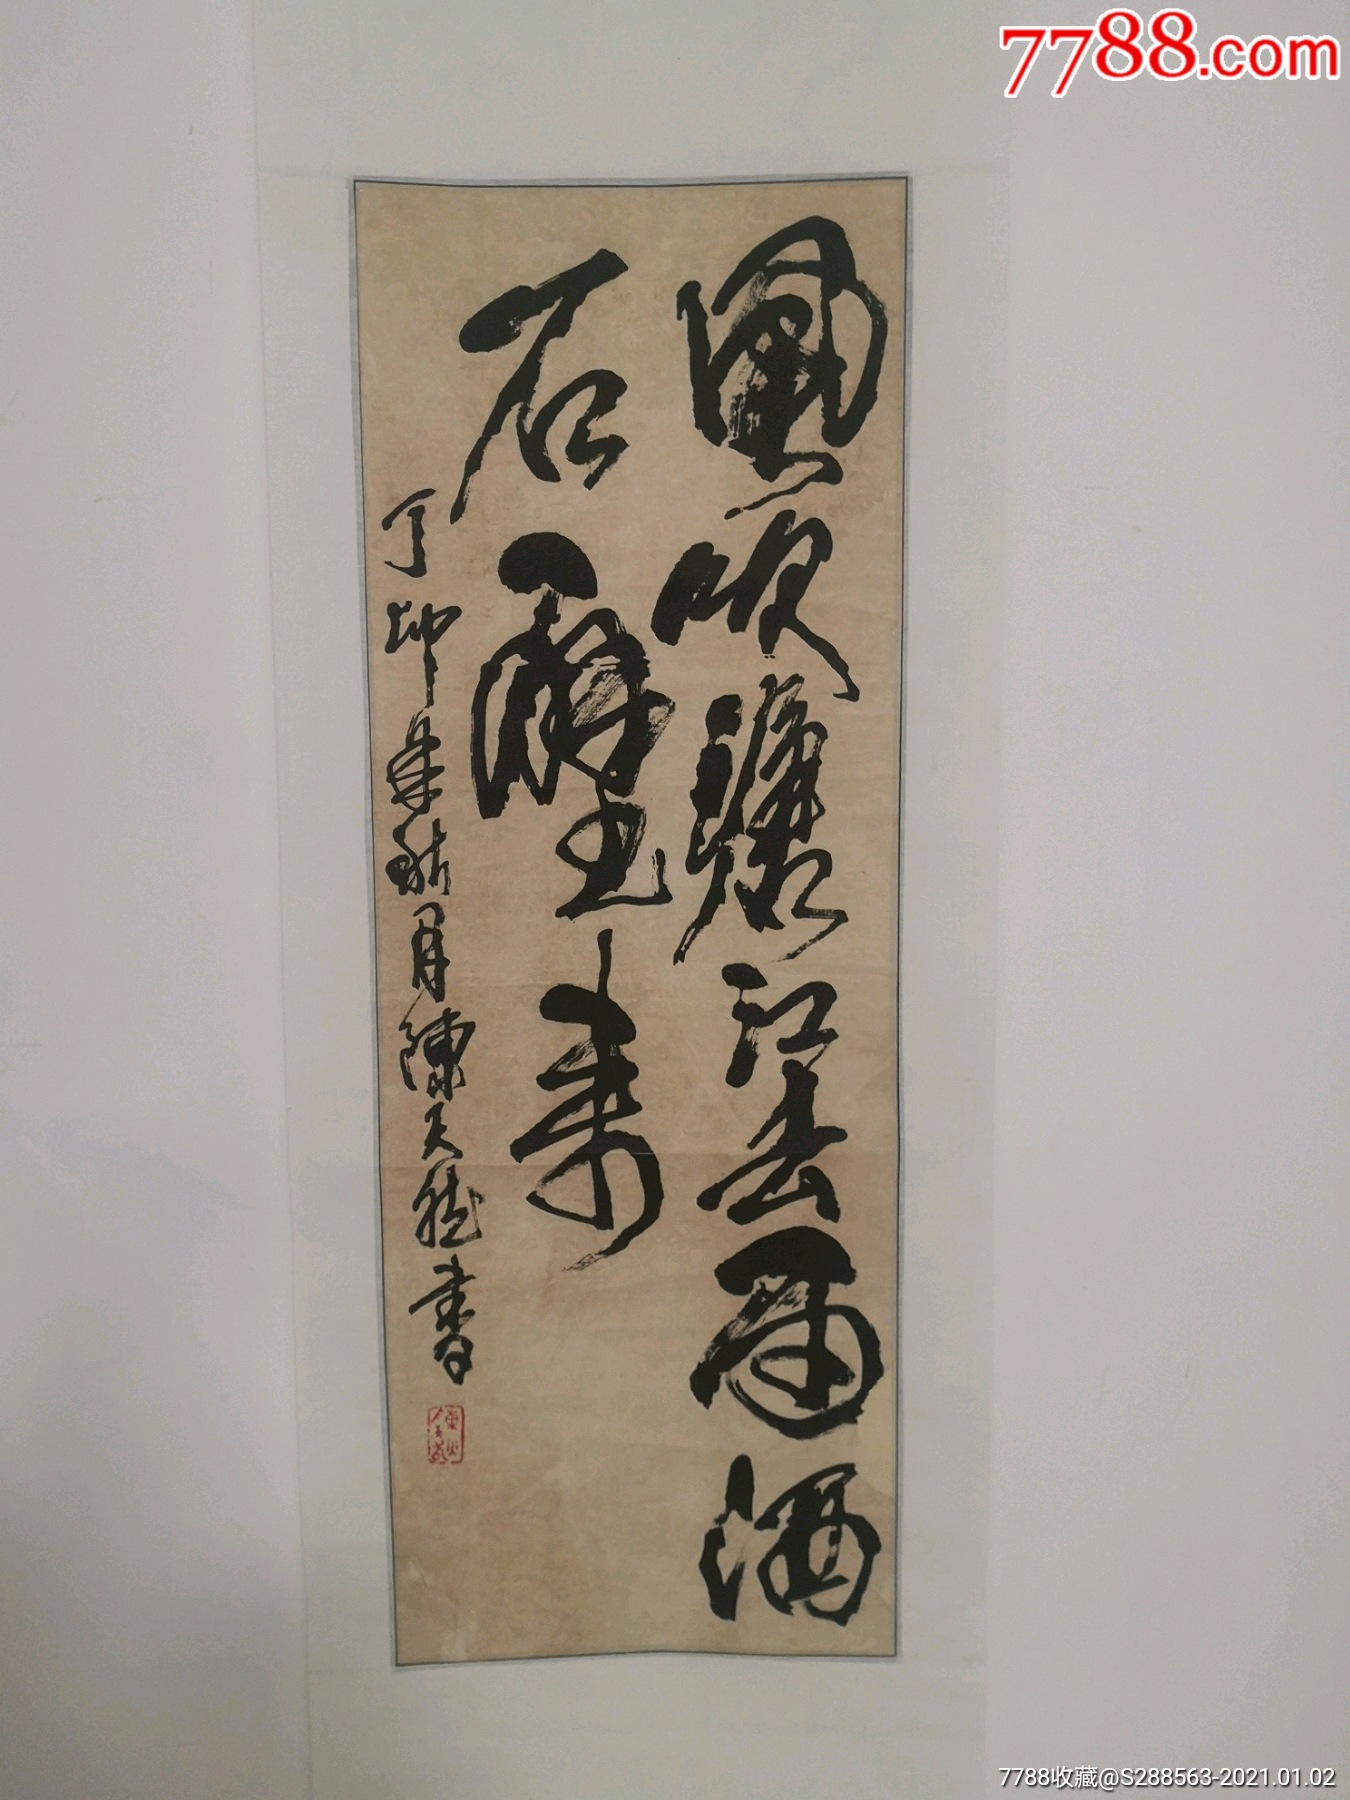 7788.com
風吹滄江去雨洒
石壁来
丁卯年秋月陳天然書
7788收藏@S288563-2021.01.02